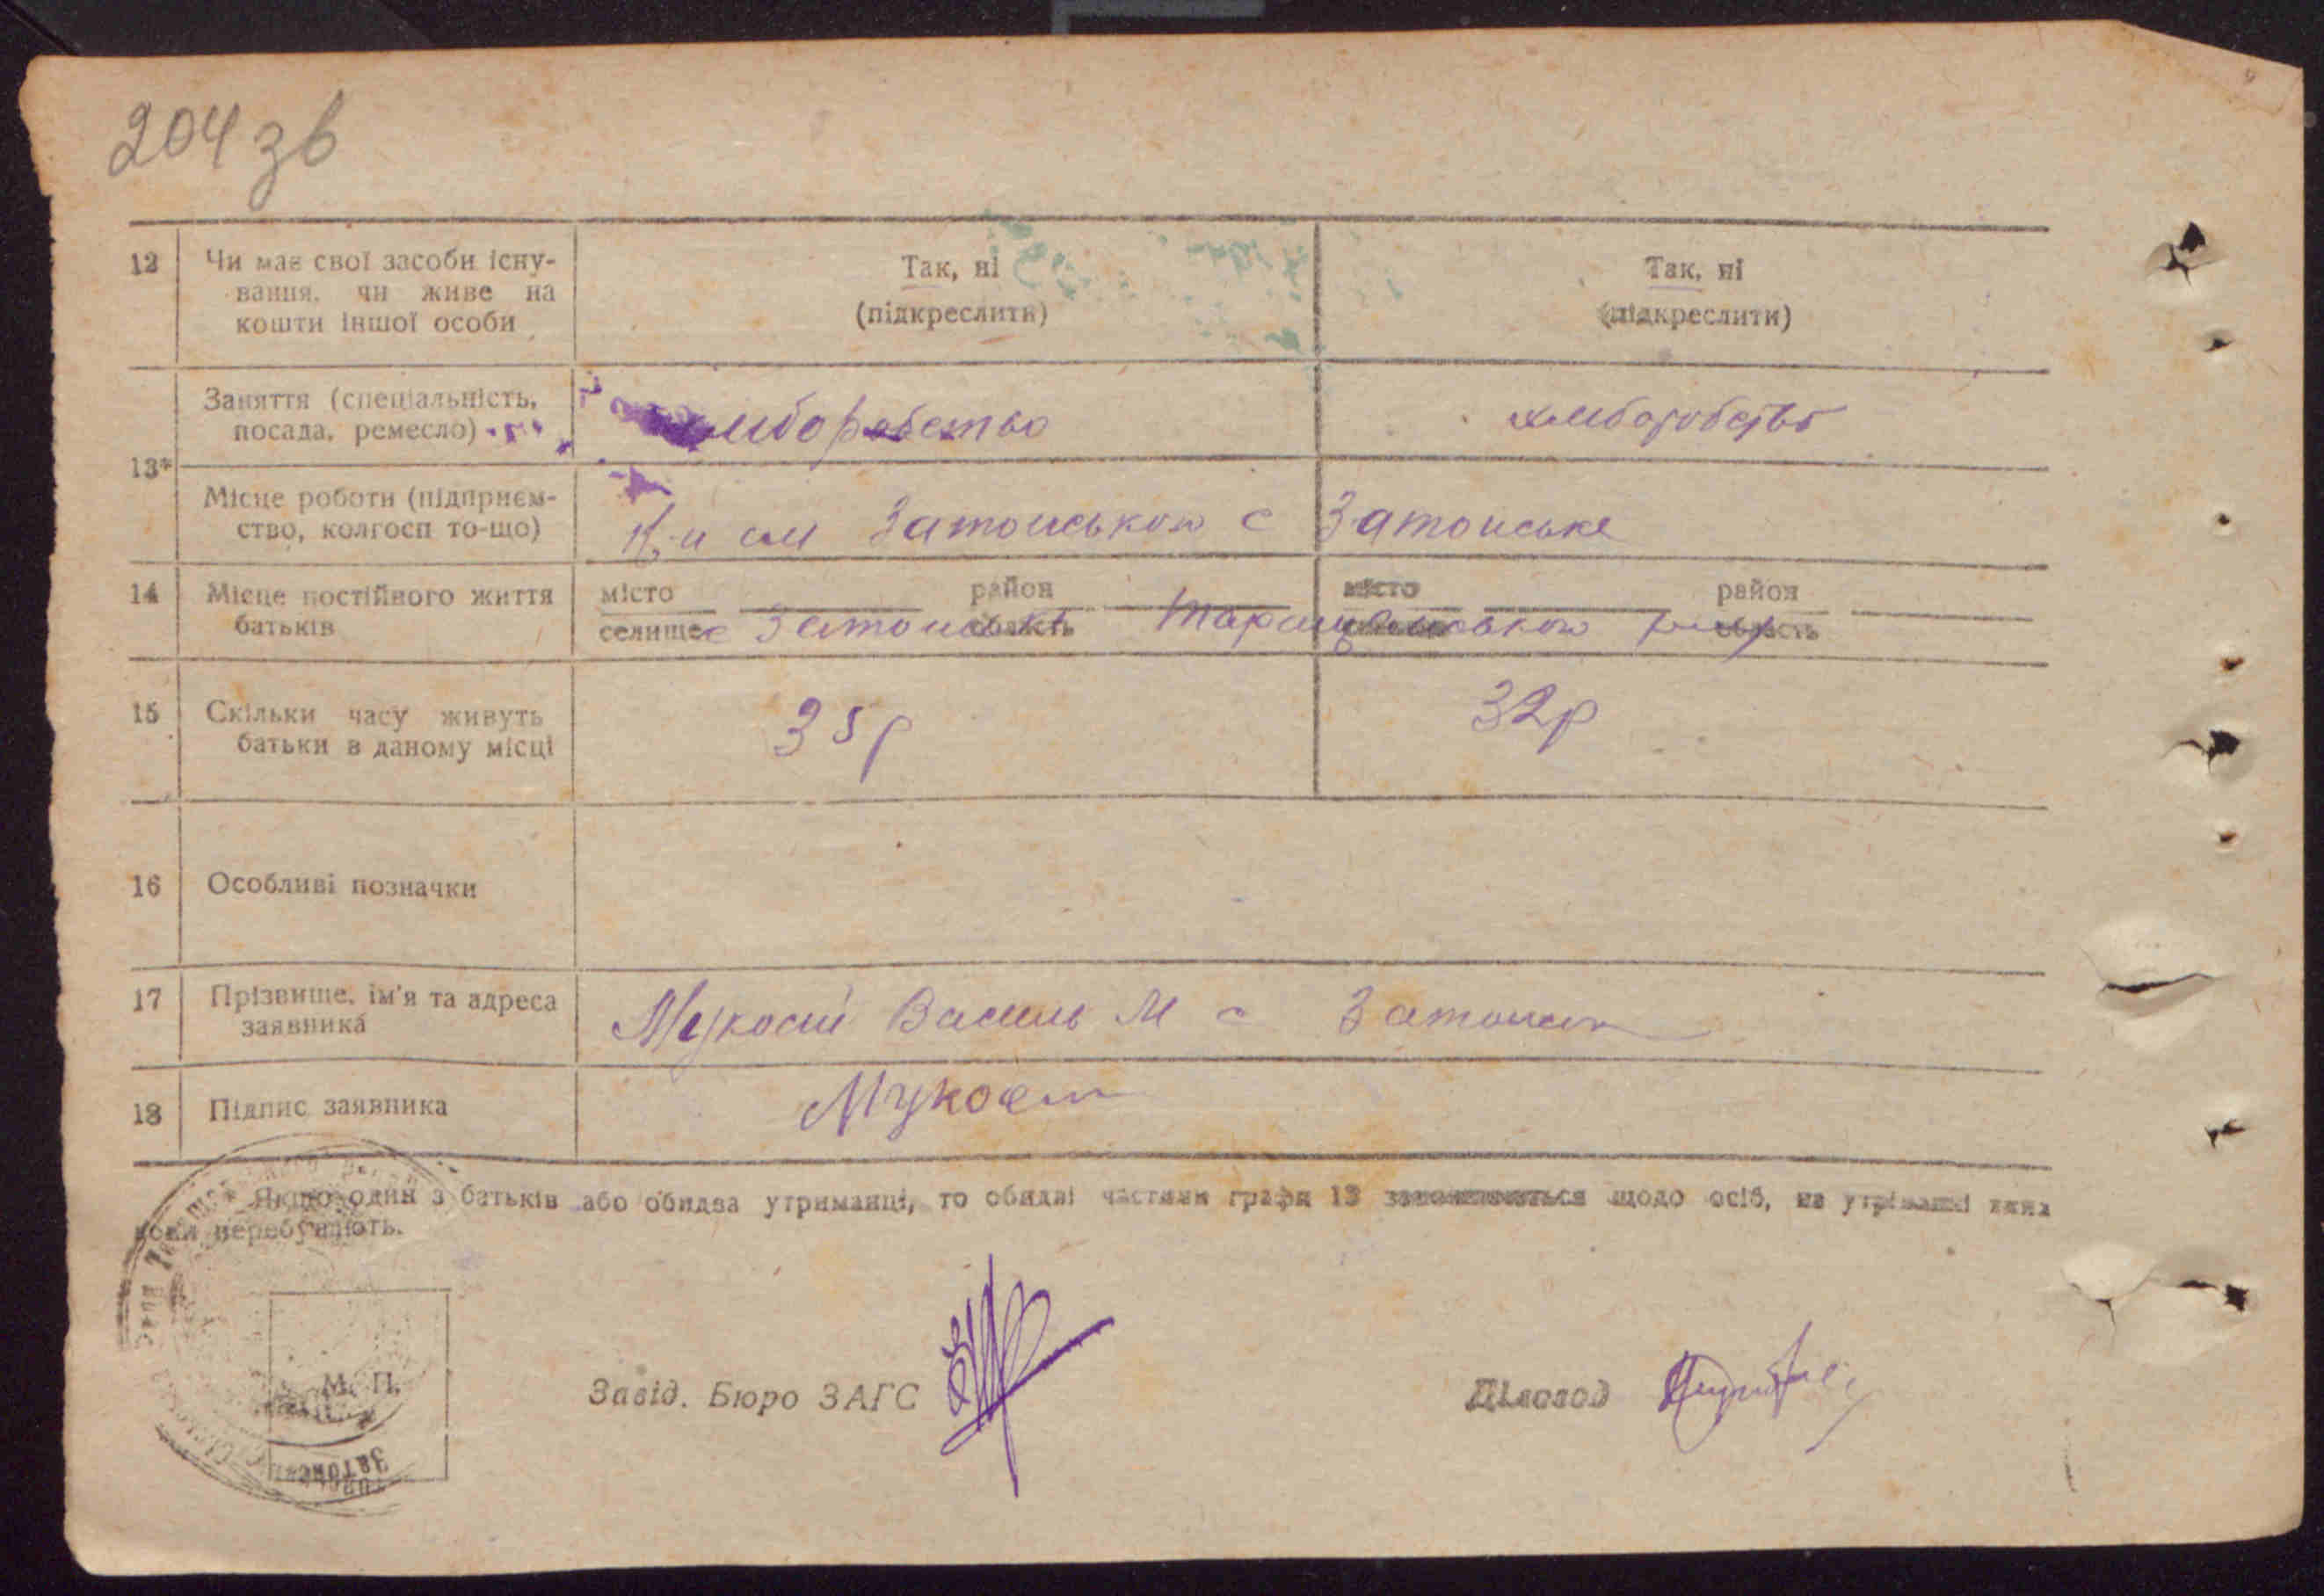 204 зв
12 Чи має свої засоби існу- Так, ні Так, ні
вання, чи живе на (підкреслити) (підкреслити)
кошти іншої особи
Заняття (спеціальність,
посада, ремесло) хліборобство хліборобство
13*
Місце роботи (підприєм-
ство, колгосп то-що) Затонською с Затонське
14 Місце постійного життя місто район місто район
батьків селище с Затонське область область
15 Скільки часу живуть 35р 32р
батьки в даному місці
16 Особливі позначки
17 Прізвище, ім'я та адреса Мукосій Василь М с Затонськ
заявника
18 Підпис заявника Мукосій
* Якщо один з батьків або обидва утриманці, то обидві частини графи 13 заповнюються щодо осіб, на утриманні яких
вони перебувають.
М. П.
Завід. Бюро ЗАГС Діловод